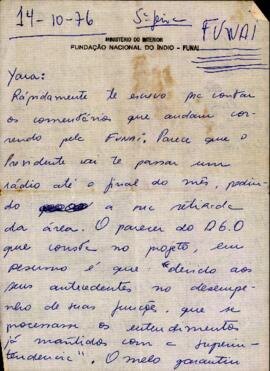 14-10-76 5ª feira
FUNAI
MINISTÉRIO DO INTERIOR
FUNDAÇÃO NACIONAL DO ÍNDIO - FUNAI
Yara:
Rápidamente te escrevo pra contar
os comentários que andam cor-
rendo pela FUNAI. Parece que o
Presidente vai te passar um
rádio até o final do mês, pedin-
do a sua retirada
da área. O parecer do DGO
que consta no projeto, em
resumo é que "devido aos
seus antecedentes no desempe-
nho de suas funções, que se
processam os entendimentos
já mantidos com a superin-
tendencia". O melo garantiu